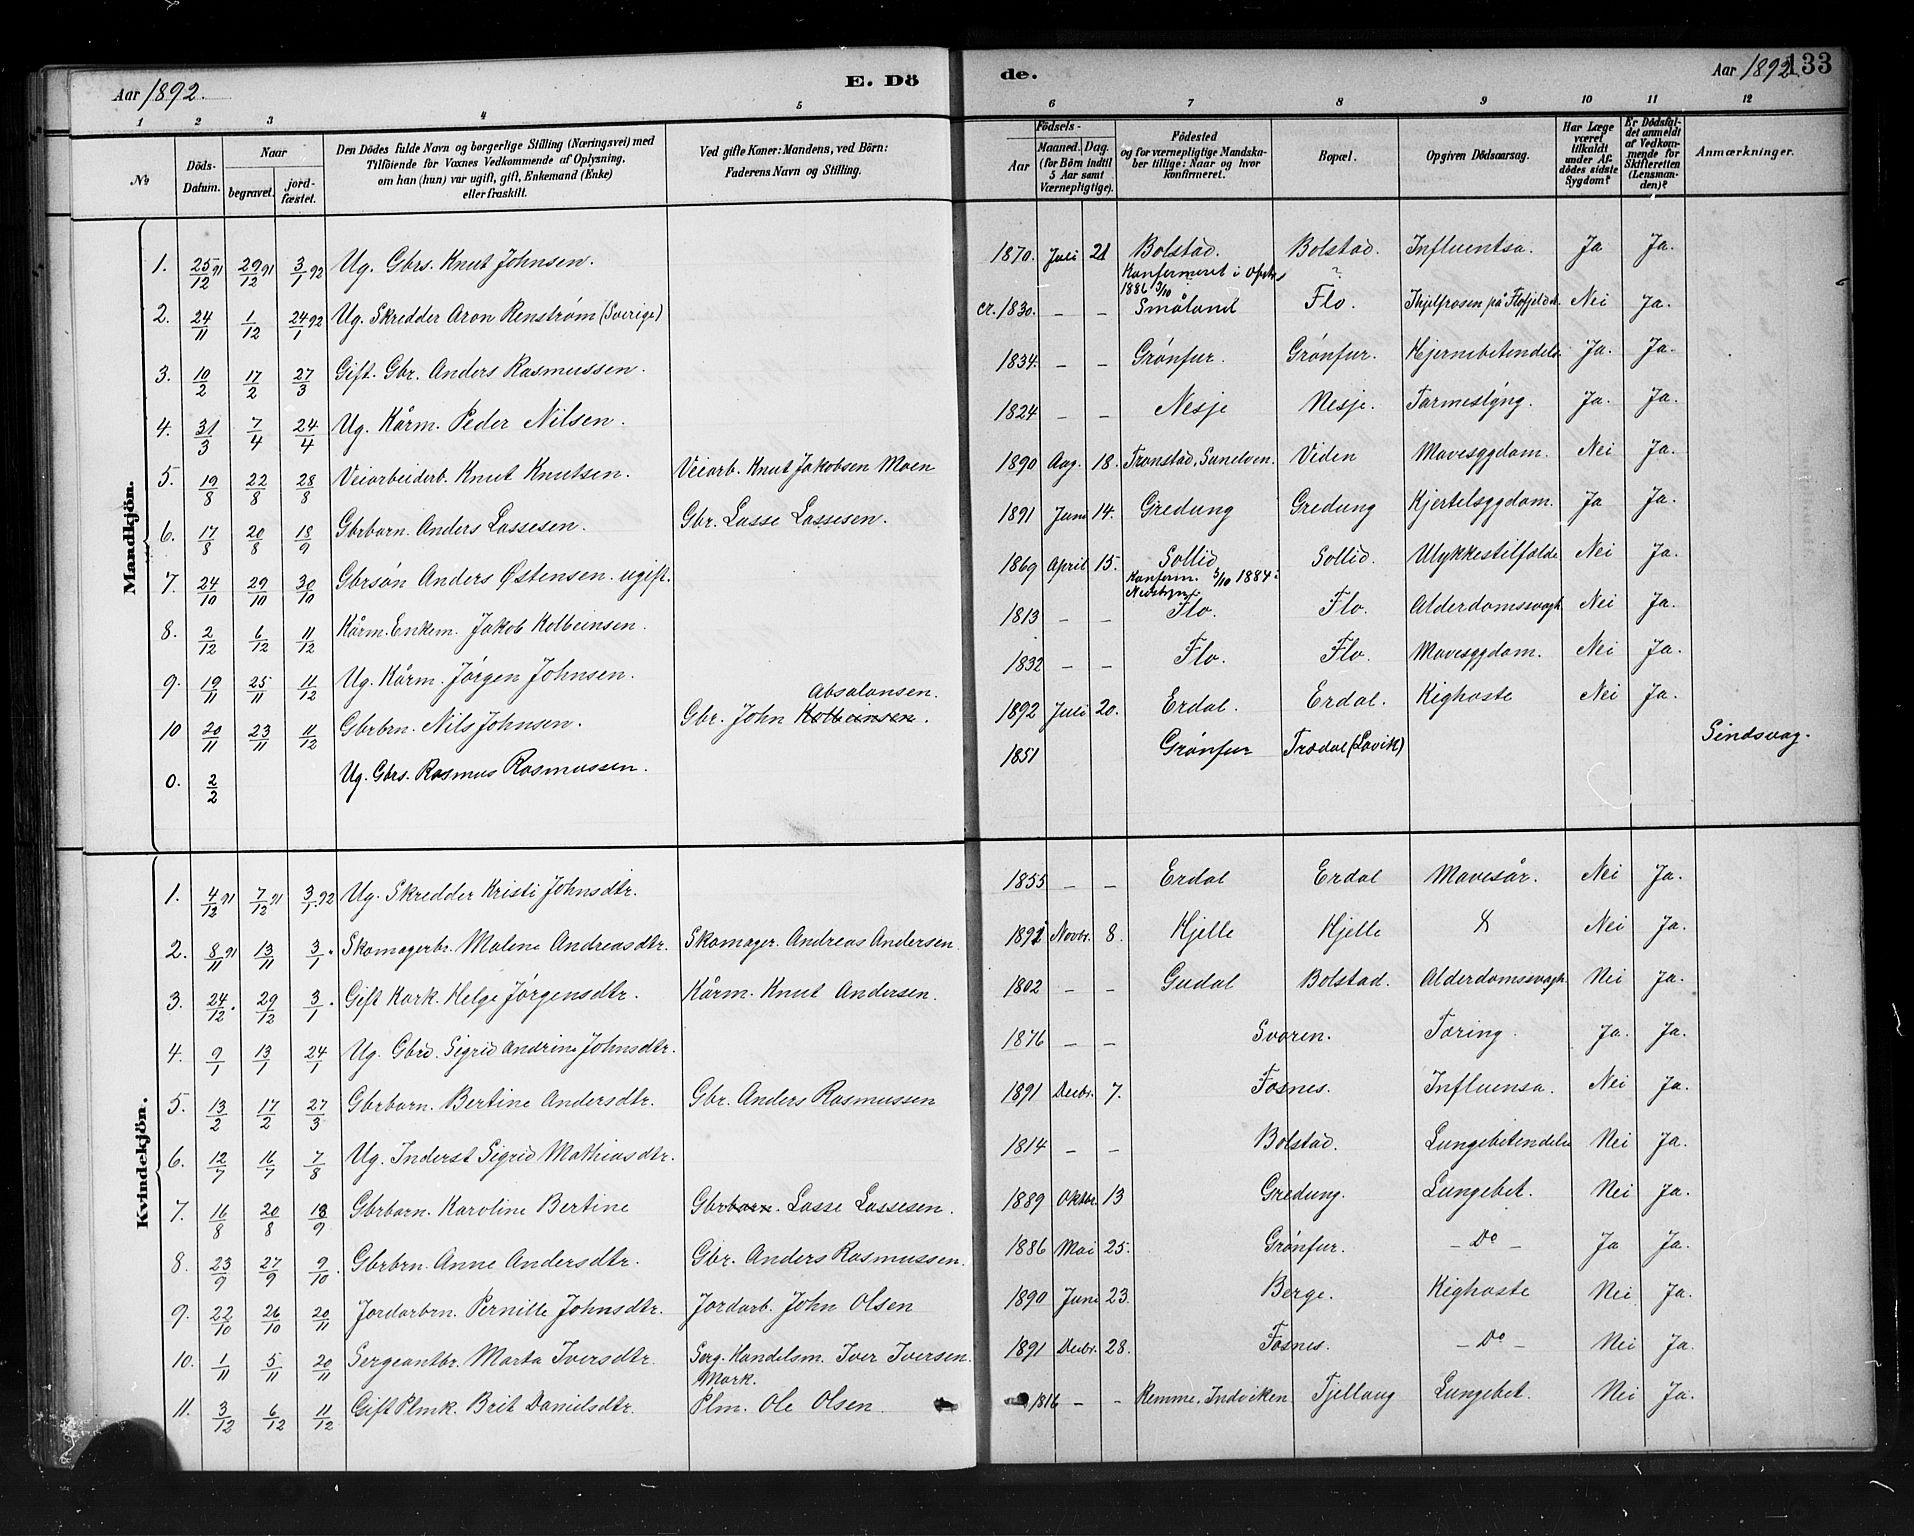 Aar 1892. E. Dö
de. Aar 1892. 133
1 2 3 4 5 6 7 8 9 10 11 12
No Döds-Datum. Naar begravet. jordfæstet. Den Dödes fulde Navn og borgerlige Stilling (Næringsvei) med Tilföiende for Voxnes Vedkommende af Oplysning, om han (hun) var ugift, gift, Enkemand (Enke) eller fraskilt. Ved gifte Koner: Mandens, ved Börn: Faderens Navn og Stilling. Födsels- Aar Maaned. Dag. (for Börn indtil 5 Aar samt Værnepligtige). Födested og for værnepligtige Mandskaber tillige: Naar og hvor konfirmeret. Bopæl. Opgiven Dödsaarsag. Har Læge været tilkaldt under Afdödes sidste Sygdom? Er Dödsfaldet anmeldt af Vedkommende for Skifteretten (Lensmanden)? Anmærkninger.
Mandkjön.
1. 25/12 91 29/12 91 3/1 92 Ug. Gbrs. Knut Johnsen. 1870. Juli 21 Bolstad. Konfirmeret i Opstr. 1886 3/10 Bolstad. Influentsa. Ja Ja.
2. 24/11 1/12 24/1 92 Ug. Skredder Aron Renstrøm (Sverige) cr. 1830. – – Småland ? Flo. Ihjelfrosen på Flofjeldet. Nei Ja.
3. 10/2 17/2 27/3 Gift. Gbr. Anders Rasmussen. 1834. – – Grønfur. Grønfur. Hjernebetendelse Ja. Ja.
4. 31/3 7/4 24/4 Ug. Kårm. Peder Nilsen. 1824 – – Nesje Nesje. Tarmeslyng. Ja. Ja.
5. 19/8 22/8 28/8 Veiarbeiderb. Knut Knutsen. Veiarb. Knut Jakobsen Moen 1890 Aug. 18. Tronstad, Sunelven. Viden Mavesygdom. Nei Ja.
6. 17/8 20/8 18/9 Gbrbarn. Anders Lassesen. Gbr. Lasse Lassesen. 1891 Juni 14. Gredung Gredung Kjertelsygdom. Ja Ja.
7. 24/10 29/10 30/10 Gbrsøn Anders Østensen. ugift. 1869 April 15. Sollid Konfirm. 5/10 1884 i Nedstryn. Sollid. Ulykkestilfælde Nei Ja.
8. 2/12 6/12 11/12 Kårm. Enkem. Jakob Kolbeinsen. 1813 – – Flo. Flo. Alderdomssvagh. Nei Ja.
9. 19/11 25/11 11/12 Ug. Kårm. Jørgen Johnsen. 1832 – – Flo. Flo. Mavesygdom. Nei Ja.
10 20/11 23/11 11/12 Gbrbrn. Nils Johnsen. Gbr. John Kolbeinsen. Absalonsen. 1892 Juli 20. Erdal. Erdal. Kighoste Nei Ja.
0. 2/2 Ug. Gbrs. Rasmus Rasmussen. 1851 Grønfur Trædal (Lavik) Sindsvag.
Kvindekjön.
1. 4/12 91 7/12 91 3/1 92 Ug. Skredder Kristi Johnsdtr. 1855 – – Erdal Erdal Mavesår. Nei Ja.
2. 8/11 91 13/11 3/1 " Skomagerbr. Malene Andreasdtr. Skomager. Andreas Andersen. 1891 Novbr. 8. Hjelle Hjelle Nei Ja.
3. 24/12 " 29/12 3/1 " Gift Kark. Helge Jørgensdtr. Kårm. Knut Andersen. 1802 – – Gudal Bolstad. Alderdomssvagh. Nei Ja.
4. 9/1 13/1 24/1 Ug. Gbrd. Sigrid Andrine Johnsdtr. 1876 – – Svoren. Tæring. Ja. Ja.
5. 13/2 17/2 27/3 Gbrbarn. Bertine Andersdtr. Gbr. Anders Rasmussen 1891 Decbr. 7. Fosnes. Influensa. Nei Ja.
6. 12/7 16/7 7/8 Ug. Inderst Sigrid Mathiasdtr. 1814 – – Bolstad. Lungebetendelse Nei Ja.
7. 16/8 20/8 18/9 Gbrbarn. Karoline Bertine Gbrbarn. Lasse Lassesen. 1889 Oktbr. 13 Gredung. Lungebet. Nei Ja.
8. 23/9 27/9 9/10. Gbrbrn. Anne Andersdtr. Gbr. Anders Rasmussen. 1886 Mai 25. Grønfur. – Do – Ja Ja.
9. 22/10 26/10 20/11 Jordarbrn. Pernille Johnsdtr. Jordarb. John Olsen 1890 Juni 23. Berge. Kighoste Nei. Ja.
10. 1/11 5/11 20/11 Sergeantbr. Marta Iversdtr. Serg. Handelsm. Iver Iversen. Mork. 1891 Decbr. 28. Fosnes. – Do – Nei Ja.
11. 3/12 6/12 11/12 Gift Plmk. Brit Danielsdtr. Plm. Ole Olsen 1816 – – Remme, Indviken Tjellaug Lungebet. Nei Ja.